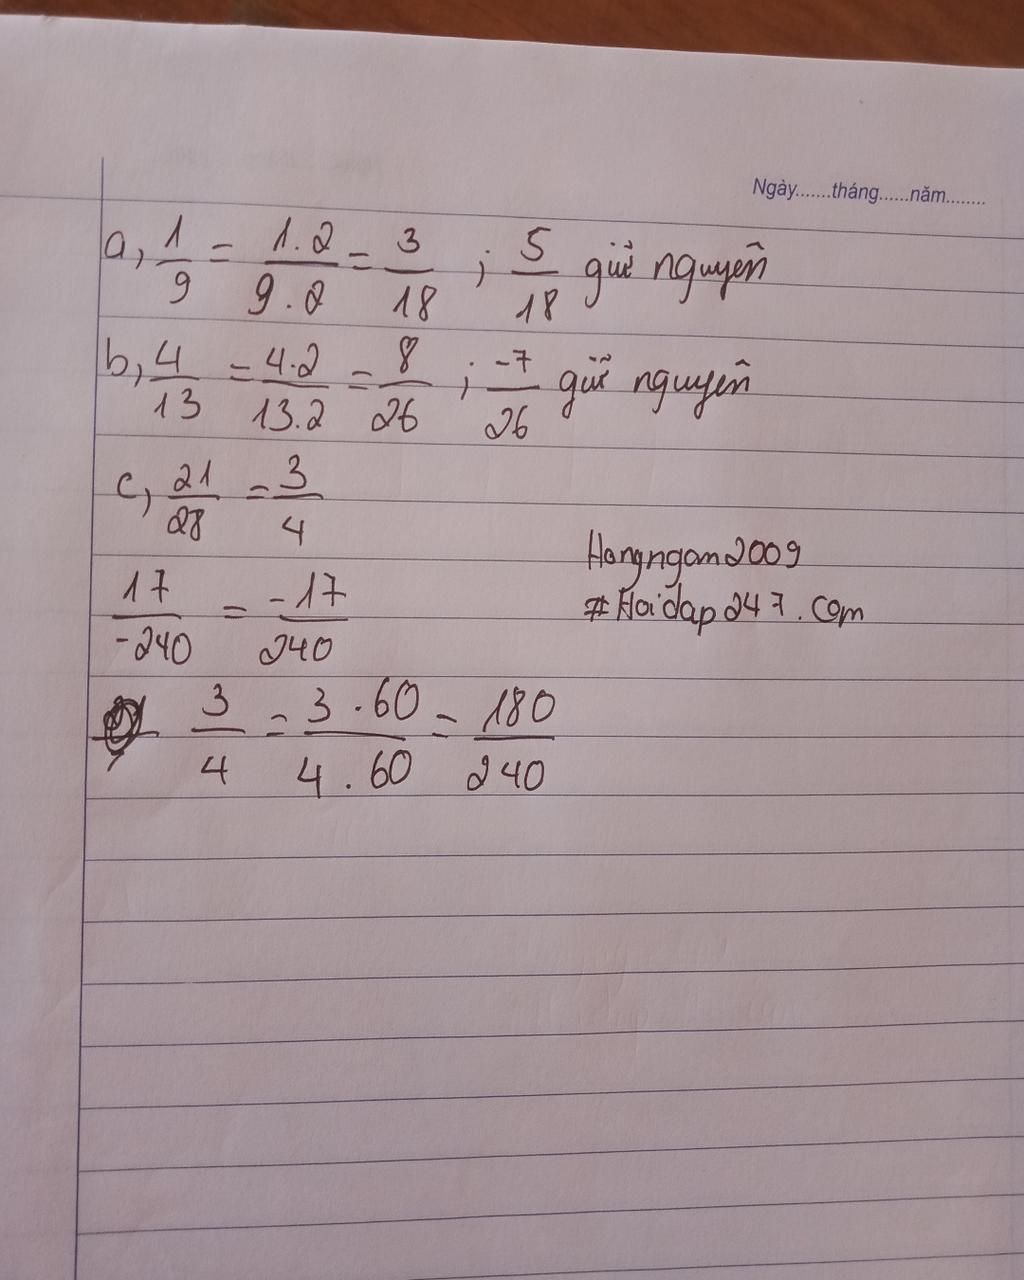 Ngày.......tháng......năm........
a, 1/9 = 1.2/9.2 = 3/18 ; 5/18 giữ nguyên
b, 4/13 = 4.2/13.2 = 8/26 ; -7/26 giữ nguyên
c, 21/28 = 3/4
Hangngan2009
17/-240 = -17/240
#Hoidap247.com
3/4 = 3.60/4.60 = 180/240